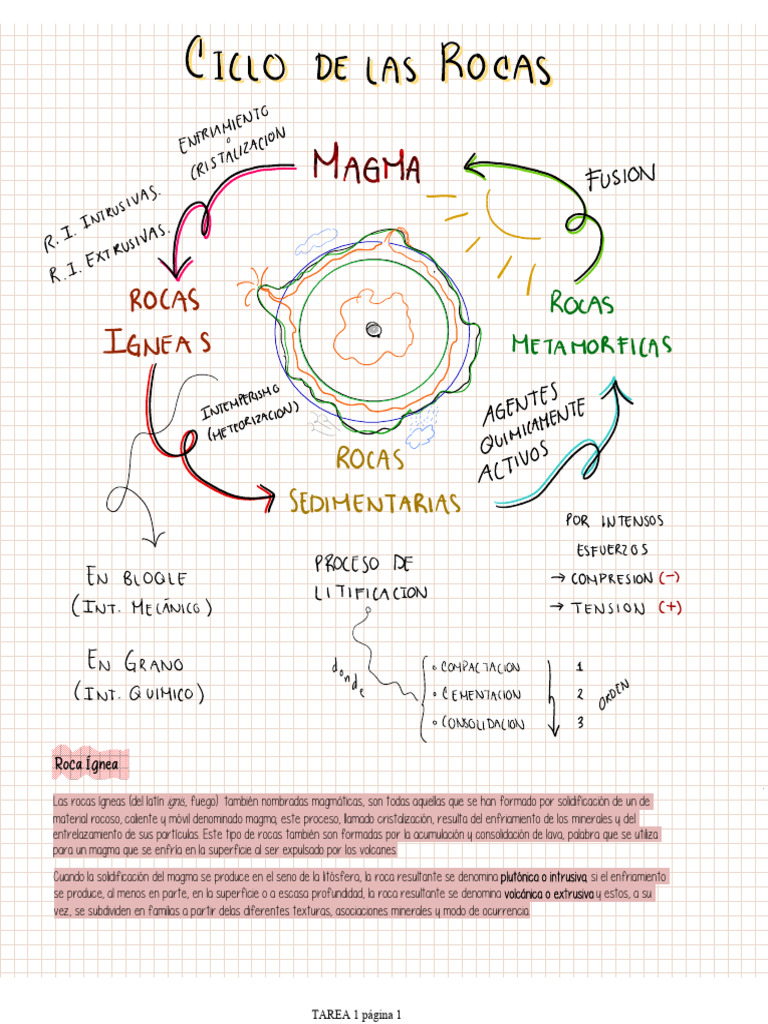 CICLO DE LAS ROCAS
ENFRIAMIENTO
O
CRISTALIZACION
MAGMA
FUSION
R. I. INTRUSIVAS.
R. I. EXTRUSIVAS.
ROCAS
IGNEAS
ROCAS
METAMORFICAS
INTEMPERISMO
(METEORIZACION)
AGENTES
QUIMICAMENTE
ACTIVOS
ROCAS
SEDIMENTARIAS
POR INTENSOS
ESFUERZOS
→ COMPRESION (-)
→ TENSION (+)
EN BLOQUE
(INT. MECÁNICO)
PROCESO DE
LITIFICACION
EN GRANO
(INT. QUIMICO)
donde
° COMPACTACION 1
° CEMENTACION 2
° CONSOLIDACION 3
ORDEN
Roca Ígnea
Las rocas ígneas (del latín ignis, fuego) también nombradas magmáticas, son todas aquellas que se han formado por solidificación de un de
material rocoso, caliente y móvil denominado magma; este proceso, llamado cristalización, resulta del enfriamiento de los minerales y del
entrelazamiento de sus partículas. Este tipo de rocas también son formadas por la acumulación y consolidación de lava, palabra que se utiliza
para un magma que se enfría en la superficie al ser expulsado por los volcanes.
Cuando la solidificación del magma se produce en el seno de la litósfera, la roca resultante se denomina plutónica o intrusiva; si el enfriamiento
se produce, al menos en parte, en la superficie o a escasa profundidad, la roca resultante se denomina volcánica o extrusiva y estos, a su
vez, se subdividen en familias a partir delas diferentes texturas, asociaciones minerales y modo de ocurrencia.
TAREA 1 página 1